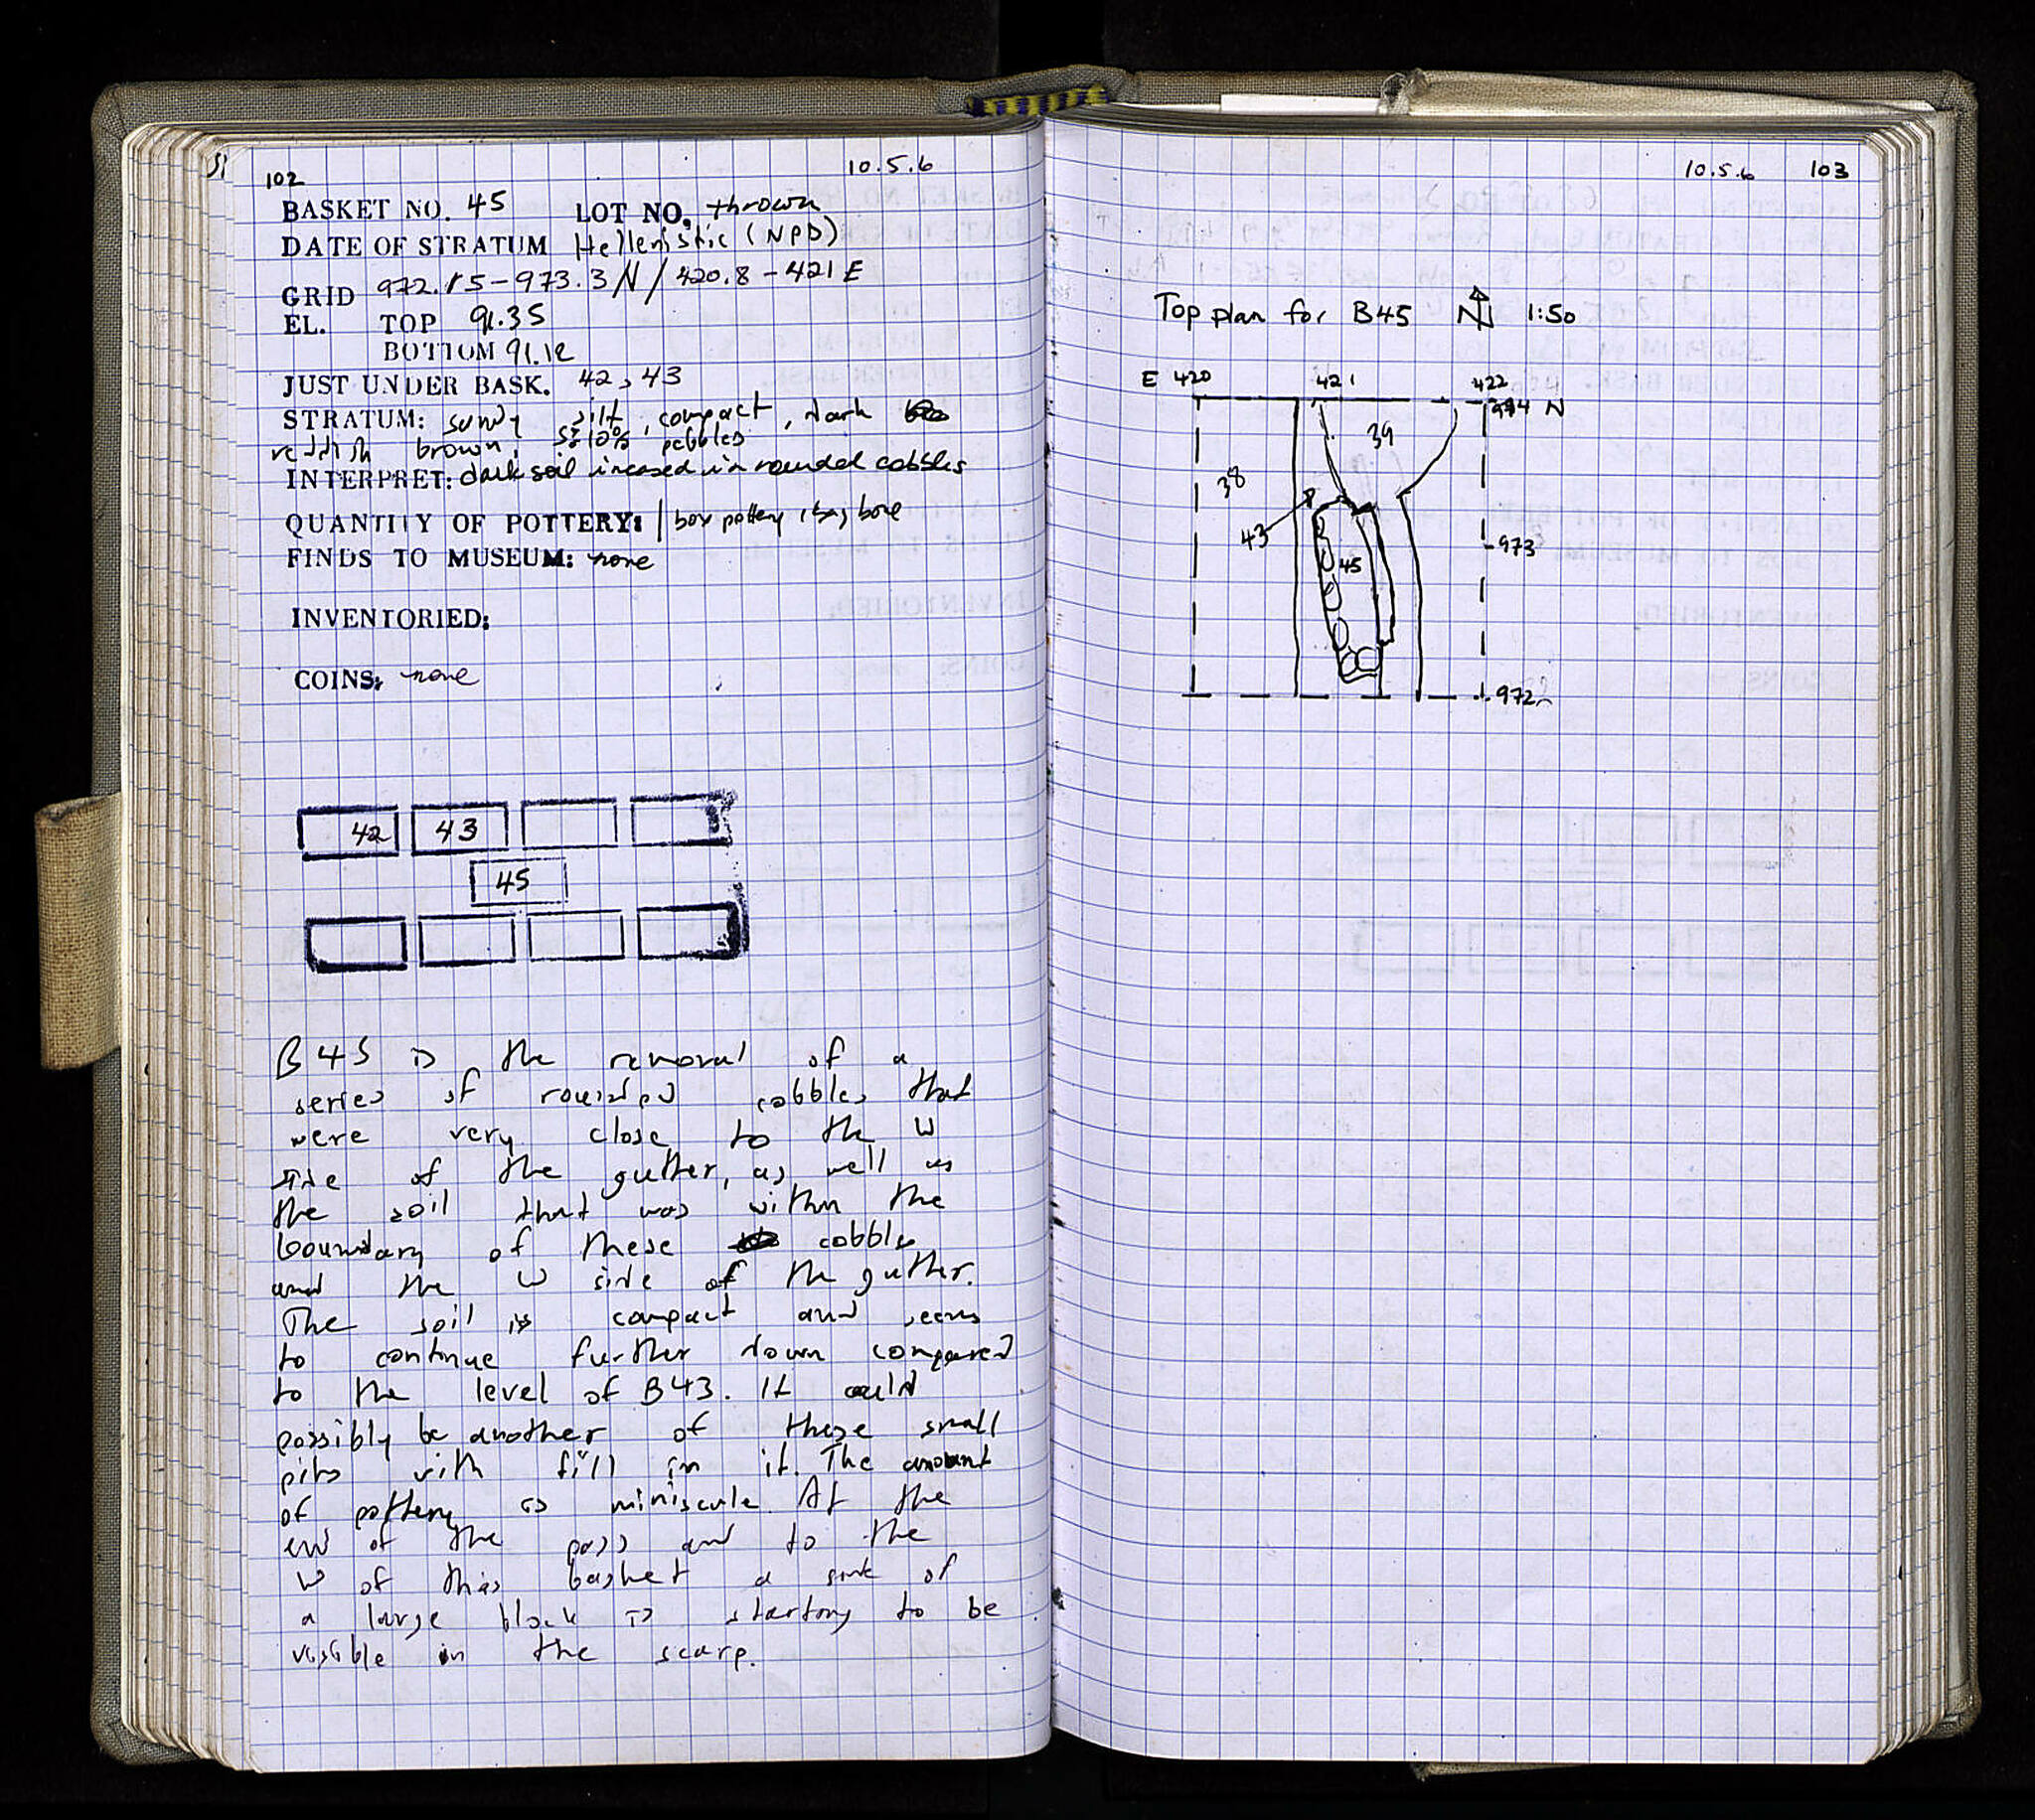 102 10.5.6
BASKET NO. 45 LOT NO. thrown
DATE OF STRATUM Hellenistic (NPD)
GRID 972.15-973.3 N / 420.8-421 E
EL. TOP 91.35
BOTTOM 91.12
JUST UNDER BASK. 42, 43
STRATUM: sandy silt, compact, dark
reddish brown, 10% pebbles
INTERPRET: dark soil incased in rounded cobbles
QUANTITY OF POTTERY: 1 box pottery, 1 bag bone
FINDS TO MUSEUM: none
INVENTORIED:
COINS: none
42 43
45
B45 is the removal of a
series of rounded cobbles that
were very close to the W
side of the gutter, as well as
the soil that was within the
boundary of these cobbles
and the W side of the gutter.
The soil is compact and seems
to continue further down compared
to the level of B43. It could
possibly be another of these small
pits with fill in it. The amount
of pottery is miniscule. At the
end of the pass and to the
W of this basket a side of
a large block is starting to be
visible in the scarp.
10.5.6 103
Top plan for B45 N 1:50
E 420 421 422
974 N
39
38
43
973
45
972